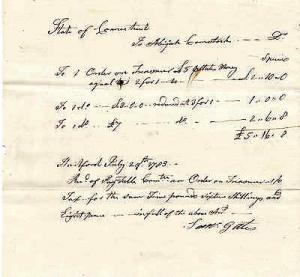 State of Connecticut
To Abijah Comstock Dr
To 1 Order on Treasurer £5 State Money
equal to 2 for 1 2..10..0
To 1 do £2.0.0 reduced at 2 for 1 1..0..0
To 1 do £7 do 2..6..8
£5..16..8
Hartford July 29th 1783
Recd of Pay Table Comtee an Order on Treasurer
for the sum five pounds sixteen Shillings and
Eight pence in full of the above Acct
Gates